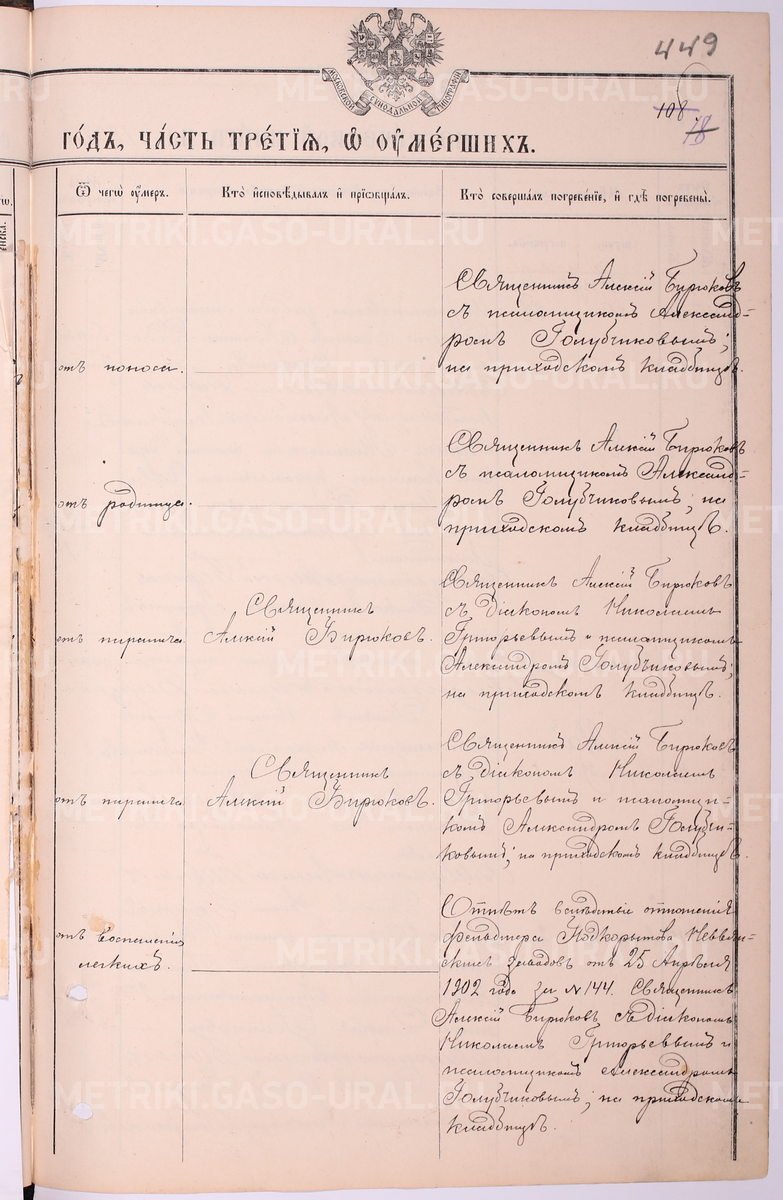 449
108
78
МОСКОВСКОЙ СѴНОДАЛЬНОЙ ТИПОГРАФІИ
ГО́ДЪ, ЧА́СТЬ ТРЕ́ТІЯ, Ѡ҆ ОУ҆МЕ́РШИХЪ.
Ѿ чегѡ̀ оу҆́меръ.
Кто̀ и҆сповѣ́дывалъ и҆ прїѡбща́лъ.
Кто̀ соверша́лъ погребе́нїе, и҆ гдѣ̀ погребены̀.
отъ поноса.
Священникъ Алексій Бирюковъ
съ псаломщикомъ Александ-
ромъ Голубчиковымъ;
на приходскомъ кладбищѣ.
отъ родимца.
Священникъ Алексій Бирюковъ
съ псаломщикомъ Александ-
ромъ Голубчиковымъ; на
приходскомъ кладбищѣ.
отъ
Священникъ
Алексій Бирюковъ.
Священникъ Алексій Бирюковъ
съ діакономъ Николаемъ
Григорьевымъ и псаломщикомъ
Александромъ Голубчиковымъ;
на приходскомъ кладбищѣ.
отъ
Священникъ
Алексій Бирюковъ.
Священникъ Алексій Бирюковъ
съ діакономъ Николаемъ
Григорьевымъ и псаломщи-
комъ Александромъ Голубчи-
ковымъ; на приходскомъ кладбищѣ.
отъ воспаленія
легкихъ.
Отпѣтъ вслѣдствіе отношенія
фельдшера Подкорытова Невьян-
скихъ заводовъ отъ 25 Апрѣля
1902 года за № 144. Священникъ
Алексій Бирюковъ съ діакономъ
Николаемъ Григорьевымъ и
псаломщикомъ Александромъ
Голубчиковымъ; на приходскомъ
кладбищѣ.
METRIKI.GASO-URAL.RU